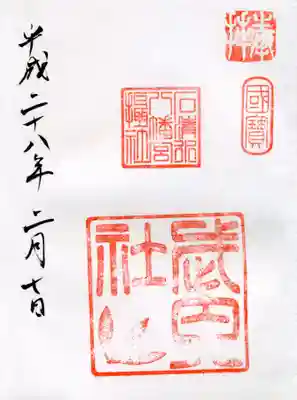 奉拝
國寶
石清水
八幡宮
攝社
武内
社
平成二十八年 二月十日